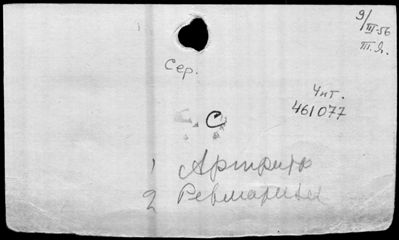 9/III-56
Т.Я.
Сер.
Чит.
461077
С
1 Артриты
2 Ревматизм